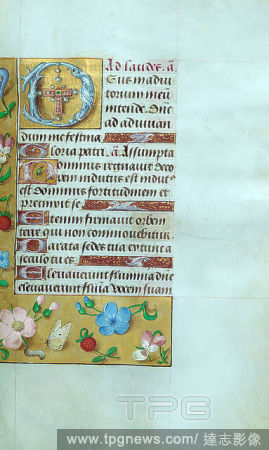 Ad laudes. a.
Eus in adiu
torium meū
intende. Dñe
ad adiuuan
dum me festina
Gloria patri. a. Assumpta
Dominus regnauit deco
rem indutus est indut⁹
est dominus fortitudinem et
precinxit se
Etenim firmauit orbem
terre qui non commouebitur
Parata sedes tua ex tunc a
seculo tu es
Eleuauerunt flumina dñe
eleuauerunt flūa vocem suam
TPG
www.tpgnews.com/達志影像